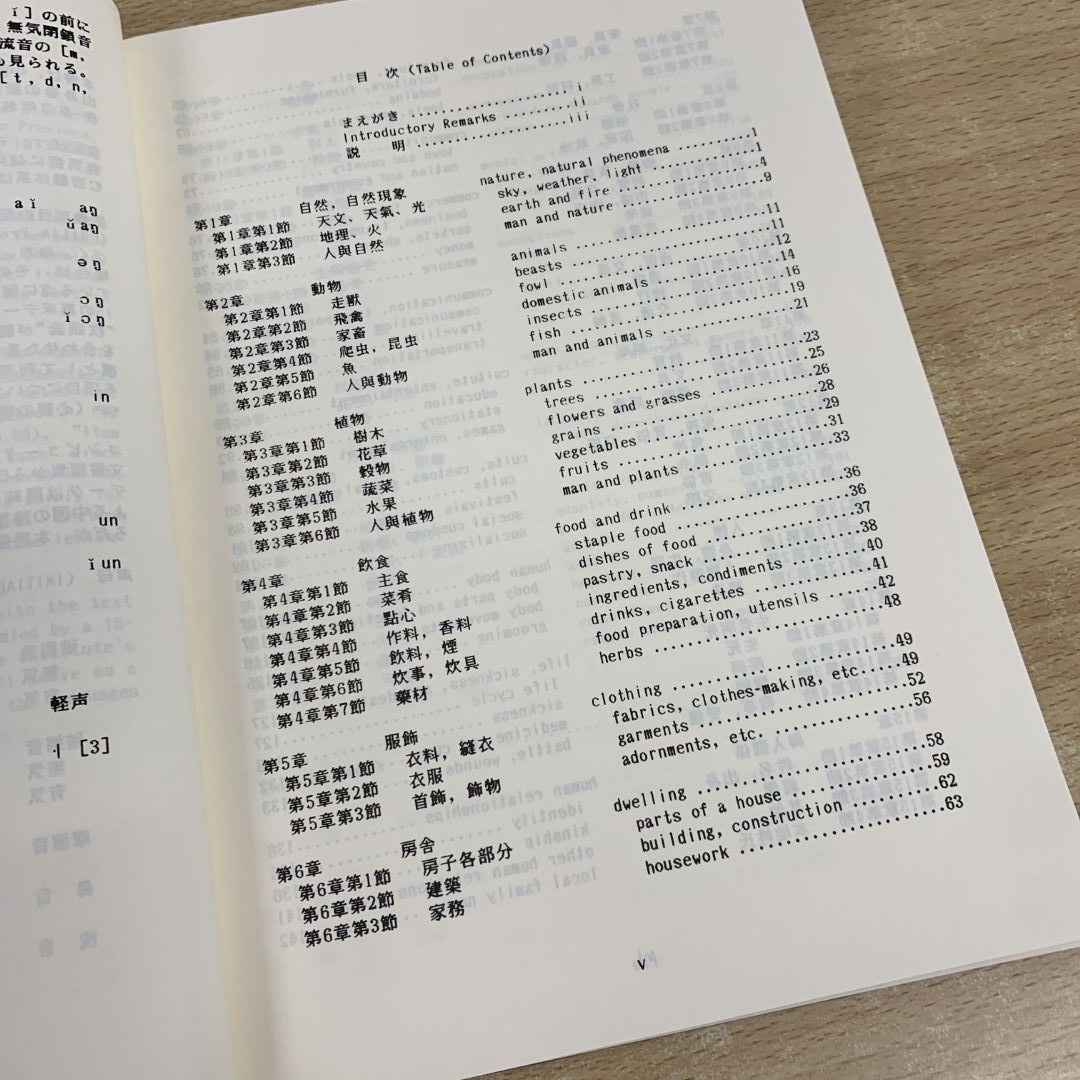 ĭ] の前に
無気閉鎖音
流音の [m,
も見られる。
[t, d, n,
aĭ aŋ
ŭaŋ
əŋ
ɔŋ
ĭɔŋ
in
un
ĭun
軽声
·| [3]
目 次 (Table of Contents)
まえがき .......... i
Introductory Remarks .......... ii
説 明 .......... iii
第1章 自然, 自然現象 nature, natural phenomena .......... 1
第1章第1節 天文、天氣、光 sky, weather, light .......... 1
第1章第2節 地理、火 earth and fire .......... 4
第1章第3節 人與自然 man and nature .......... 9
第2章 動物 animals .......... 11
第2章第1節 走獸 beasts .......... 11
第2章第2節 飛禽 fowl .......... 12
第2章第3節 家畜 domestic animals .......... 14
第2章第4節 爬虫, 昆虫 insects .......... 16
第2章第5節 魚 fish .......... 19
第2章第6節 人與動物 man and animals .......... 21
第3章 植物 plants .......... 23
第3章第1節 樹木 trees .......... 25
第3章第2節 花草 flowers and grasses .......... 26
第3章第3節 穀物 grains .......... 28
第3章第4節 蔬菜 vegetables .......... 29
第3章第5節 水果 fruits .......... 31
第3章第6節 人與植物 man and plants .......... 33
第4章 飲食 food and drink .......... 36
第4章第1節 主食 staple food .......... 36
第4章第2節 菜肴 dishes of food .......... 37
第4章第3節 點心 pastry, snack .......... 38
第4章第4節 作料, 香料 ingredients, condiments .......... 40
第4章第5節 飲料, 煙 drinks, cigarettes .......... 41
第4章第6節 炊事, 炊具 food preparation, utensils .......... 42
第4章第7節 藥材 herbs .......... 48
第5章 服飾 clothing .......... 49
第5章第1節 衣料, 縫衣 fabrics, clothes-making, etc. .......... 49
第5章第2節 衣服 garments .......... 52
第5章第3節 首飾, 飾物 adornments, etc. .......... 56
第6章 房舍 dwelling .......... 58
第6章第1節 房子各部分 parts of a house .......... 59
第6章第2節 建築 building, construction .......... 62
第6章第3節 家務 housework .......... 63
v